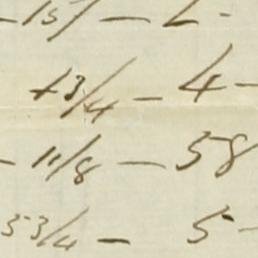 - 15/ - L -
13/4 - 4 -
- 11/8 - 58
53/4 - 5 -